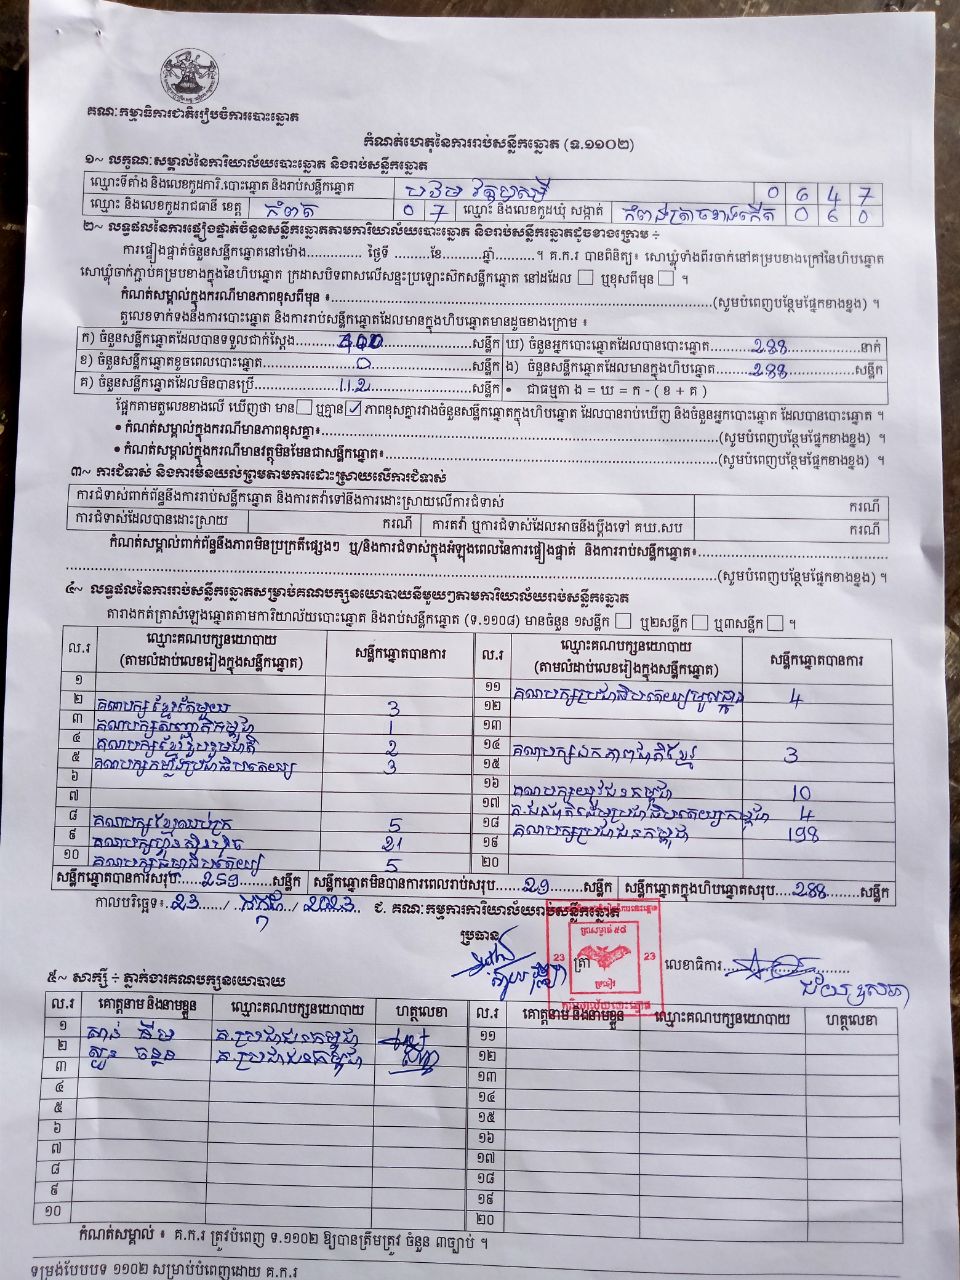 គណៈកម្មាធិការជាតិរៀបចំការបោះឆ្នោត
កំណត់ហេតុនៃការរាប់សន្លឹកឆ្នោត (ទ.១១០២)
១~ លក្ខណៈសម្គាល់នៃការិយាល័យបោះឆ្នោត និងរាប់សន្លឹកឆ្នោត
ឈ្មោះទីតាំង និងលេខកូដការិ.បោះឆ្នោត និងរាប់សន្លឹកឆ្នោត 0 6 4 7
ឈ្មោះ និងលេខកូដរាជធានី ខេត្ត កំពត 0 7 ឈ្មោះ និងលេខកូដឃុំ សង្កាត់ កំពង់ត្រាចខាងកើត 0 6 0
២~ លទ្ធផលនៃការផ្ទៀងផ្ទាត់ចំនួនសន្លឹកឆ្នោតតាមការិយាល័យបោះឆ្នោត និងរាប់សន្លឹកឆ្នោតដូចខាងក្រោម ÷
ការផ្ទៀងផ្ទាត់ចំនួនសន្លឹកឆ្នោតនៅម៉ោង.............. ថ្ងៃទី .........ខែ..........ឆ្នាំ..........។ គ.ក.រ បានពិនិត្យ៖ សោឃ្លុំទាំងពីរចាក់នៅគម្របខាងក្រៅនៃហិបឆ្នោត
សោឃ្លុំចាក់ភ្ជាប់គម្របខាងក្នុងនៃហិបឆ្នោត ក្រដាសបិទពាសលើសន្ទះប្រឡោះស៊កសន្លឹកឆ្នោត នៅដដែល ☐ ឬខុសពីមុន ☐ ។
កំណត់សម្គាល់ក្នុងករណីមានភាពខុសពីមុន ៖..........(សូមបំពេញបន្ថែមផ្នែកខាងខ្នង) ។
តួលេខទាក់ទងនឹងការបោះឆ្នោត និងការរាប់សន្លឹកឆ្នោតដែលមានក្នុងហិបឆ្នោតមានដូចខាងក្រោម ៖
ក) ចំនួនសន្លឹកឆ្នោតដែលបានទទួលជាក់ស្តែង 400 សន្លឹក ឃ) ចំនួនអ្នកបោះឆ្នោតដែលបានបោះឆ្នោត 288 នាក់
ខ) ចំនួនសន្លឹកឆ្នោតខូចពេលបោះឆ្នោត 0 សន្លឹក ង) ចំនួនសន្លឹកឆ្នោតដែលមានក្នុងហិបឆ្នោត 288 សន្លឹក
គ) ចំនួនសន្លឹកឆ្នោតដែលមិនបានប្រើ 112 សន្លឹក • ជាធម្មតា ង = ឃ = ក - ( ខ + គ )
ផ្អែកតាមតួលេខខាងលើ ឃើញថា មាន ☐ ឬគ្មាន ☑ ភាពខុសគ្នារវាងចំនួនសន្លឹកឆ្នោតក្នុងហិបឆ្នោត ដែលបានរាប់ឃើញ និងចំនួនអ្នកបោះឆ្នោត ដែលបានបោះឆ្នោត ។
• កំណត់សម្គាល់ក្នុងករណីមានភាពខុសគ្នា៖..........(សូមបំពេញបន្ថែមផ្នែកខាងខ្នង) ។
• កំណត់សម្គាល់ក្នុងករណីមានវត្ថុមិនមែនជាសន្លឹកឆ្នោត៖..........(សូមបំពេញបន្ថែមផ្នែកខាងខ្នង) ។
៣~ ការជំទាស់ និងការមិនយល់ព្រមតាមការដោះស្រាយលើការជំទាស់
ការជំទាស់ពាក់ព័ន្ធនឹងការរាប់សន្លឹកឆ្នោត និងការតវ៉ាទៅនឹងការដោះស្រាយលើការជំទាស់ ករណី
ការជំទាស់ដែលបានដោះស្រាយ ករណី ការតវ៉ា ឬការជំទាស់ដែលអាចនឹងប្តឹងទៅ គឃ.សប ករណី
កំណត់សម្គាល់ពាក់ព័ន្ធនឹងភាពមិនប្រក្រតីផ្សេងៗ ឬ/និងការជំទាស់ក្នុងអំឡុងពេលនៃការផ្ទៀងផ្ទាត់ និងការរាប់សន្លឹកឆ្នោត៖..........
..........(សូមបំពេញបន្ថែមផ្នែកខាងខ្នង) ។
៤~ លទ្ធផលនៃការរាប់សន្លឹកឆ្នោតសម្រាប់គណបក្សនយោបាយនីមួយៗតាមការិយាល័យរាប់សន្លឹកឆ្នោត
តារាងកត់ត្រាសំឡេងឆ្នោតតាមការិយាល័យបោះឆ្នោត និងរាប់សន្លឹកឆ្នោត (ទ.១១០៨) មានចំនួន ១សន្លឹក ☐ ឬ២សន្លឹក ☐ ឬ៣សន្លឹក ☐ ។
ល.រ ឈ្មោះគណបក្សនយោបាយ (តាមលំដាប់លេខរៀងក្នុងសន្លឹកឆ្នោត) សន្លឹកឆ្នោតបានការ ល.រ ឈ្មោះគណបក្សនយោបាយ (តាមលំដាប់លេខរៀងក្នុងសន្លឹកឆ្នោត) សន្លឹកឆ្នោតបានការ
១ ១១ គណបក្សប្រជាធិបតេយ្យមូលដ្ឋាន 4
២ គណបក្សខ្មែរតែមួយ 3 ១២
៣ គណបក្សសញ្ជាតិកម្ពុជា 1 ១៣
៤ គណបក្សខ្មែររួបរួមជាតិ 2 ១៤ គណបក្សឯកភាពជាតិខ្មែរ 3
៥ គណបក្សកម្លាំងប្រជាធិបតេយ្យ 3 ១៥
៦ ១៦ គណបក្សយុវជនកម្ពុជា 10
៧ ១៧ គ.ជនជាតិដើមប្រជាធិបតេយ្យកម្ពុជា 4
៨ គណបក្សខ្មែរឈប់ក្រ 5 ១៨ គណបក្សប្រជាជនកម្ពុជា 198
៩ គណបក្សហ្វ៊ុនស៊ិនប៉ិច 21 ១៩
១០ គណបក្សធម្មាធិបតេយ្យ 5 ២០
សន្លឹកឆ្នោតបានការសរុប 259 សន្លឹក សន្លឹកឆ្នោតមិនបានការពេលរាប់សរុប 29 សន្លឹក សន្លឹកឆ្នោតក្នុងហិបឆ្នោតសរុប 288 សន្លឹក
កាលបរិច្ឆេទ៖ 23 / កក្កដា / 2023 ជ. គណៈកម្មការការិយាល័យរាប់សន្លឹកឆ្នោត
ប្រធាន ត្រា លេខាធិការ
23 23
៥~ សាក្សី ÷ ភ្នាក់ងារគណបក្សនយោបាយ
ល.រ គោត្តនាម និងនាមខ្លួន ឈ្មោះគណបក្សនយោបាយ ហត្ថលេខា ល.រ គោត្តនាម និងនាមខ្លួន ឈ្មោះគណបក្សនយោបាយ ហត្ថលេខា
១ គ.ប្រជាជនកម្ពុជា ១១
២ គ.ប្រជាជនកម្ពុជា ១២
៣ ១៣
៤ ១៤
៥ ១៥
៦ ១៦
៧ ១៧
៨ ១៨
៩ ១៩
១០ ២០
កំណត់សម្គាល់ ៖ គ.ក.រ ត្រូវបំពេញ ទ.១១០២ ឱ្យបានត្រឹមត្រូវ ចំនួន ៣ច្បាប់ ។
ទម្រង់បែបបទ ១១០២ សម្រាប់បំពេញដោយ គ.ក.រ